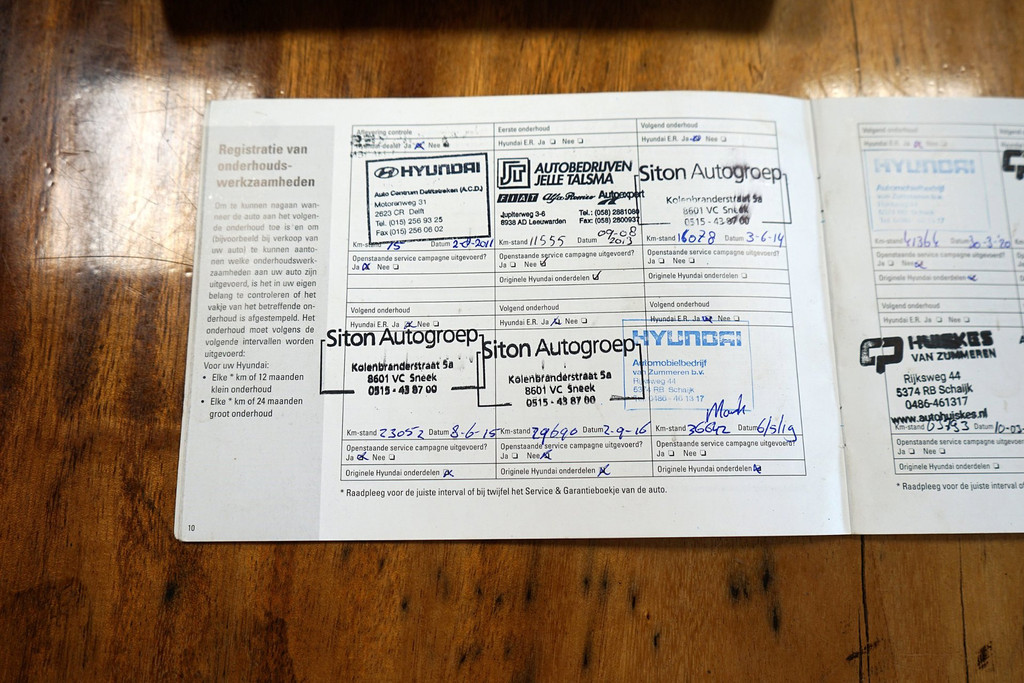 Registratie van
onderhouds-
werkzaamheden
Om te kunnen nagaan wan-
neer de auto aan het volgen-
de onderhoud toe is en om
(bijvoorbeeld bij verkoop van
uw auto) te kunnen aanto-
nen welke onderhoudswerk-
zaamheden aan uw auto zijn
uitgevoerd, is het in uw eigen
belang te controleren of het
vakje van het betreffende on-
derhoud is afgestempeld. Het
onderhoud moet volgens de
volgende intervallen worden
uitgevoerd:
Voor uw Hyundai:
• Elke * km of 12 maanden
klein onderhoud
• Elke * km of 24 maanden
groot onderhoud
10
Aflevering controle
Hyundai-dealer Ja Nee
HYUNDAI
Auto Centrum Delfstreken (A.C.D.)
Motorenweg 31
2623 CR Delft
Tel. (015) 256 93 25
Fax (015) 256 06 02
Km-stand 15 Datum 2-8-2011
Openstaande service campagne uitgevoerd?
Ja Nee
Eerste onderhoud
Hyundai E.R. Ja Nee
AUTOBEDRIJVEN
JELLE TALSMA
FIAT Alfa Romeo Autoexpert
Jupiterweg 3-6 Tel.: (058) 2881080
8938 AD Leeuwarden Fax: (058) 2800937
Km-stand 11555 Datum 09-08 2013
Openstaande service campagne uitgevoerd?
Ja Nee
Originele Hyundai onderdelen
Volgend onderhoud
Hyundai E.R. Ja Nee
Siton Autogroep
Kolenbranderstraat 5a
8601 VC Sneek
0515 - 43 87 00
Km-stand 16078 Datum 3-6-14
Openstaande service campagne uitgevoerd?
Ja Nee
Originele Hyundai onderdelen
Volgend onderhoud
Hyundai E.R. Ja Nee
Siton Autogroep
Kolenbranderstraat 5a
8601 VC Sneek
0515 - 43 87 00
Km-stand 23052 Datum 8-6-15
Openstaande service campagne uitgevoerd?
Ja Nee
Originele Hyundai onderdelen
Volgend onderhoud
Hyundai E.R. Ja Nee
Siton Autogroep
Kolenbranderstraat 5a
8601 VC Sneek
0515 - 43 87 00
Km-stand 29690 Datum 2-9-16
Openstaande service campagne uitgevoerd?
Ja Nee
Originele Hyundai onderdelen
Volgend onderhoud
Hyundai E.R. Ja Nee
HYUNDAI
Automobielbedrijf
van Zummeren b.v.
Rijksweg 44
5374 RB Schaijk
0486 - 46 13 17
Km-stand Datum 6/5/19
Openstaande service campagne uitgevoerd?
Ja Nee
Originele Hyundai onderdelen
* Raadpleeg voor de juiste interval of bij twijfel het Service & Garantieboekje van de auto.
Volgend onderhoud
Hyundai E.R. Ja Nee
HYUNDAI
Automobielbedrijf
Km-stand 41364 Datum 30-3-20
Openstaande service campagne uitgevoerd?
Ja Nee
Originele Hyundai onderdelen
Volgend onderhoud
HUISKES
VAN ZUMMEREN
Rijksweg 44
5374 RB Schaijk
0486-461317
www.autohuiskes.nl
Km-stand Datum 10-03-
Openstaande service campagne uitgevoerd?
Ja Nee
Originele Hyundai onderdelen
* Raadpleeg voor de juiste interval of